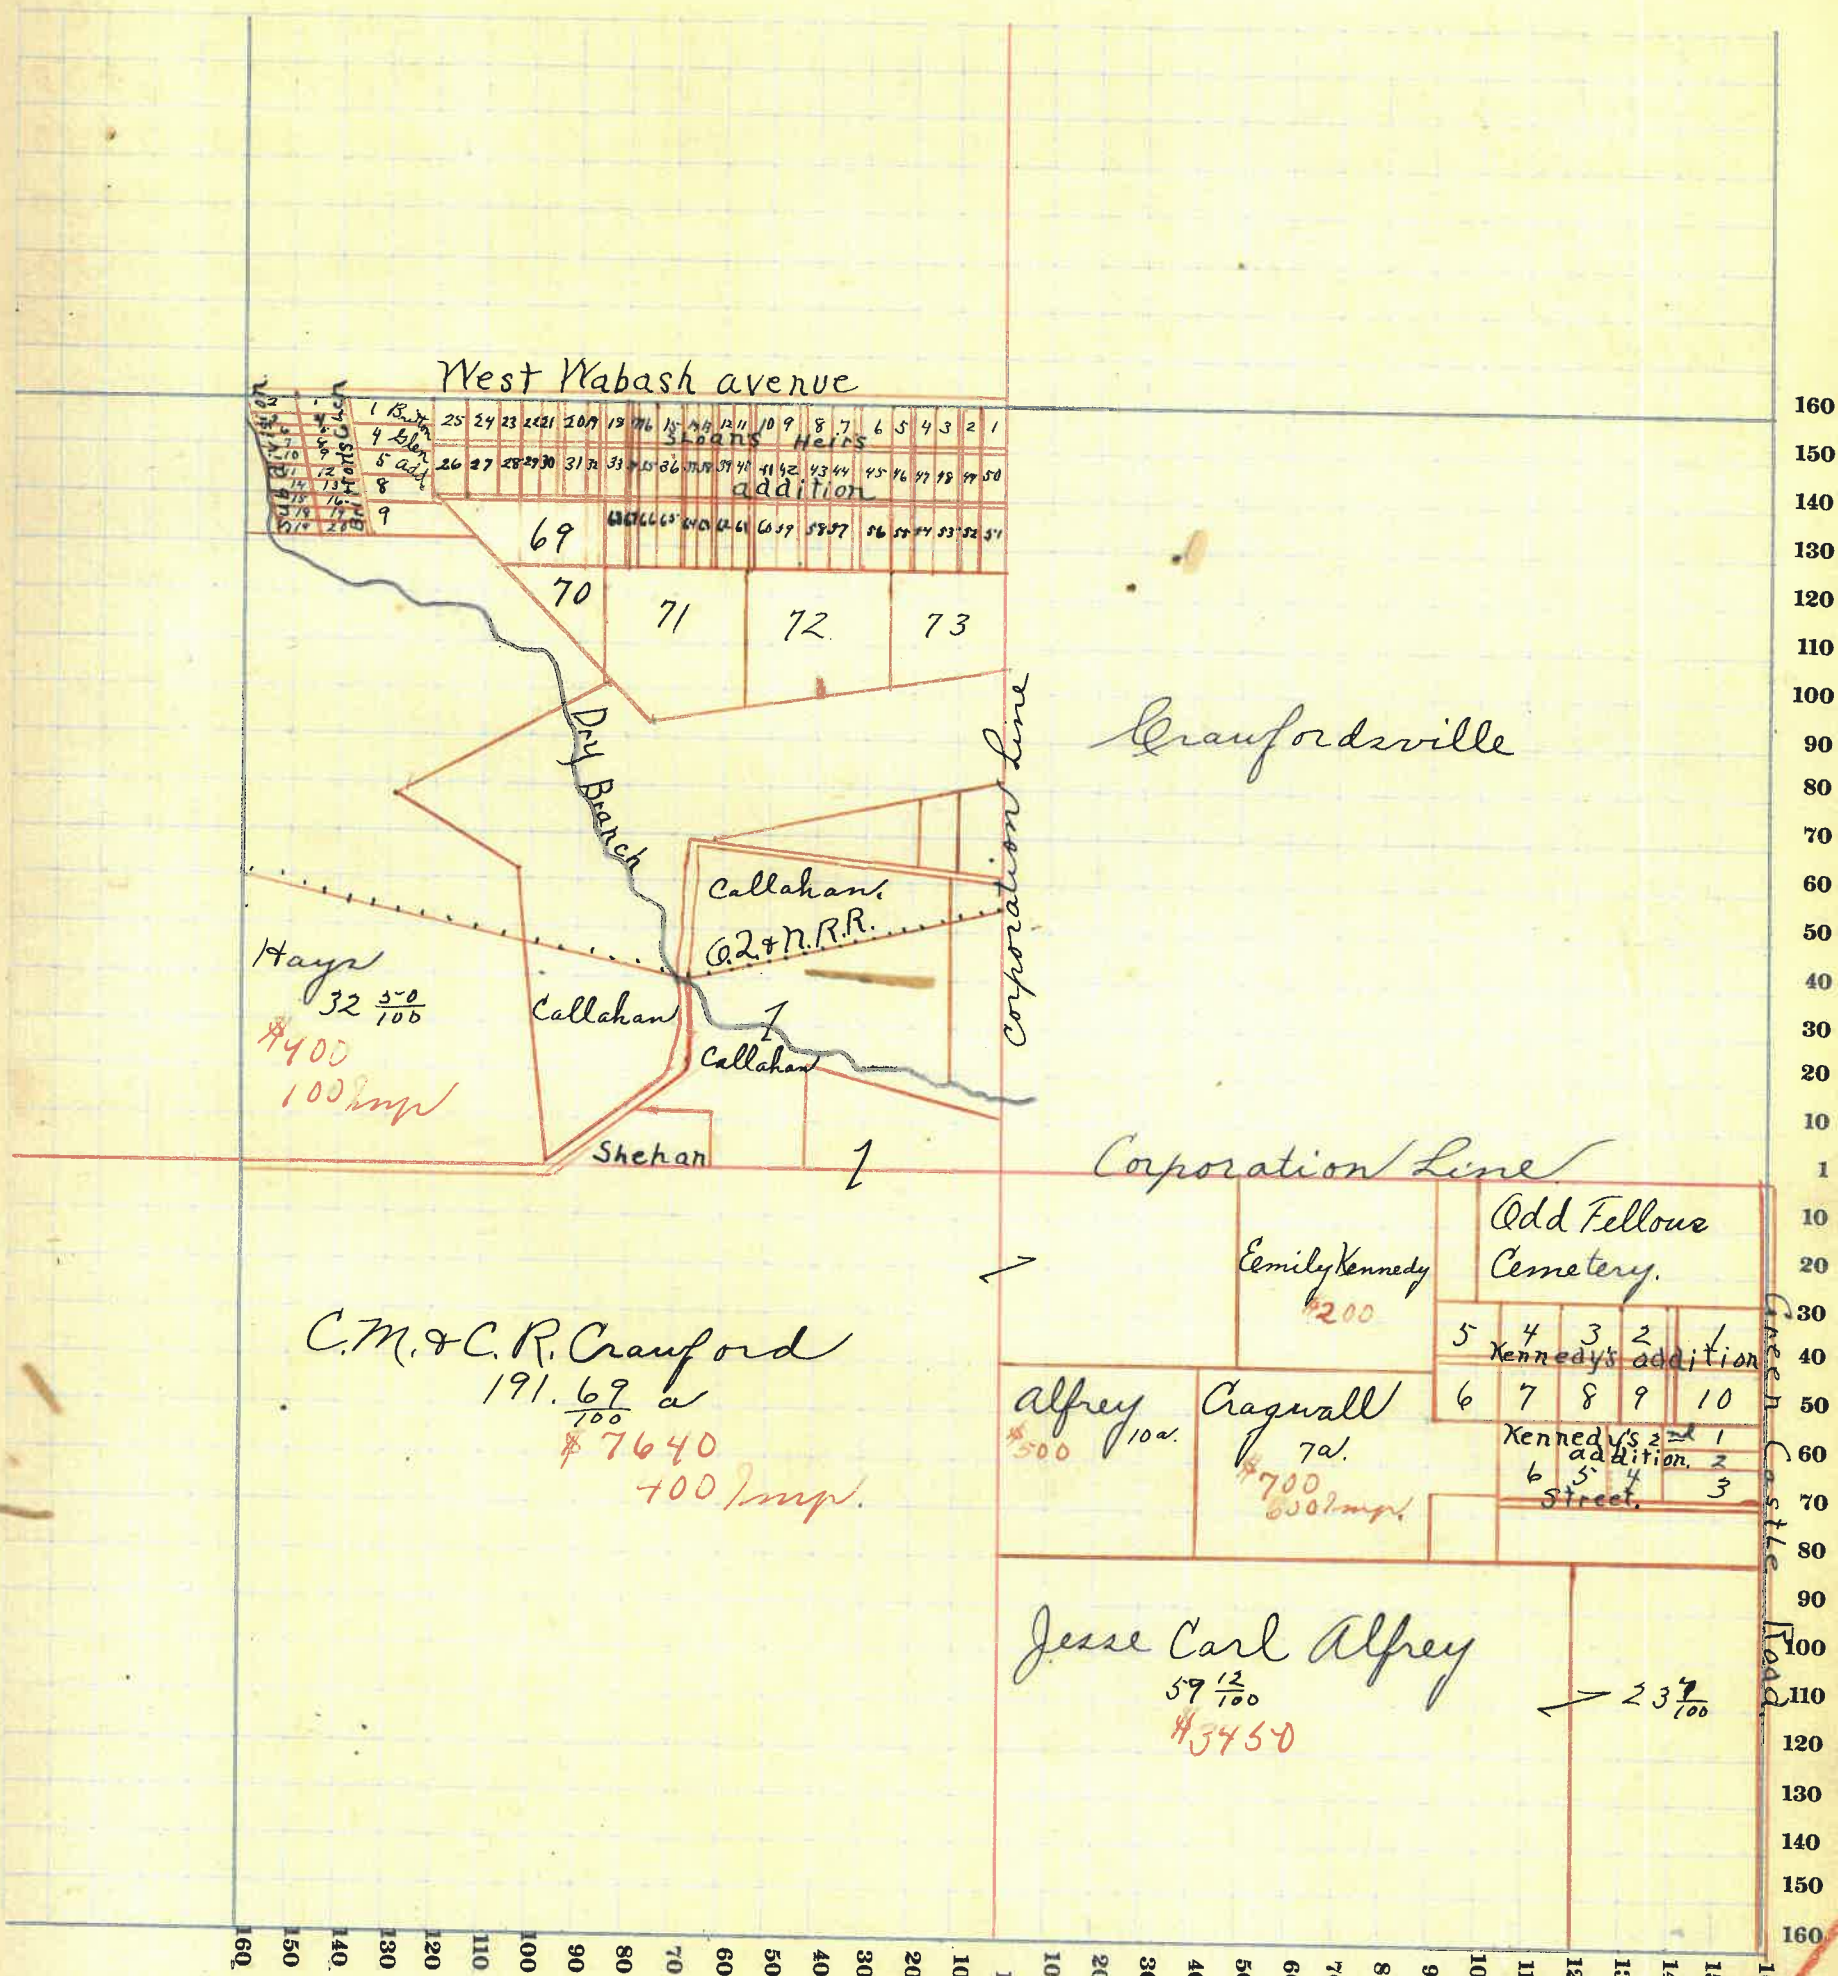 West Wabash avenue
Sub division
Britton's Glen
2 1
1 Britton
4 Glen
5 add
8
9
25 24 23 22 21 20 19 18 17 16 15 14 13 12 11 10 9 8 7 6 5 4 3 2 1
Sloans Heirs
26 27 28 29 30 31 32 33 34 35 36 37 38 39 40 41 42 43 44 45 46 47 48 49 50
addition
69 68 67 66 65 64 63 62 61 60 59 58 57 56 55 54 53 52 51
70 71 72 73
Dry Branch
Corporation Line
Crawfordsville
Callahan.
R.R.
Hays
32 50/100
$400
100 Imp
Callahan
1
Callahan
Shehan
1
Corporation Line
Odd Fellows
Cemetery.
Eemily Kennedy
$200
5 4 3 2 1
Kennedy's addition
6 7 8 9 10
Kennedy's 2nd 1
addition. 2
6 5 4 3
Street.
Green Castle Road.
C.M. & C.R. Crawford
191. 69/100 a
$7640
400 Imp.
Alfrey
10a.
$500
Cragwall
7a.
$700
600 Imp.
Jesse Carl Alfrey
59 12/100
$3450
23 7/100
160
150
140
130
120
110
100
90
80
70
60
50
40
30
20
10
1
10
20
30
40
50
60
70
80
90
100
110
120
130
140
150
160
160 150 140 130 120 110 100 90 80 70 60 50 40 30 20 10 1 10 20 30 40 50